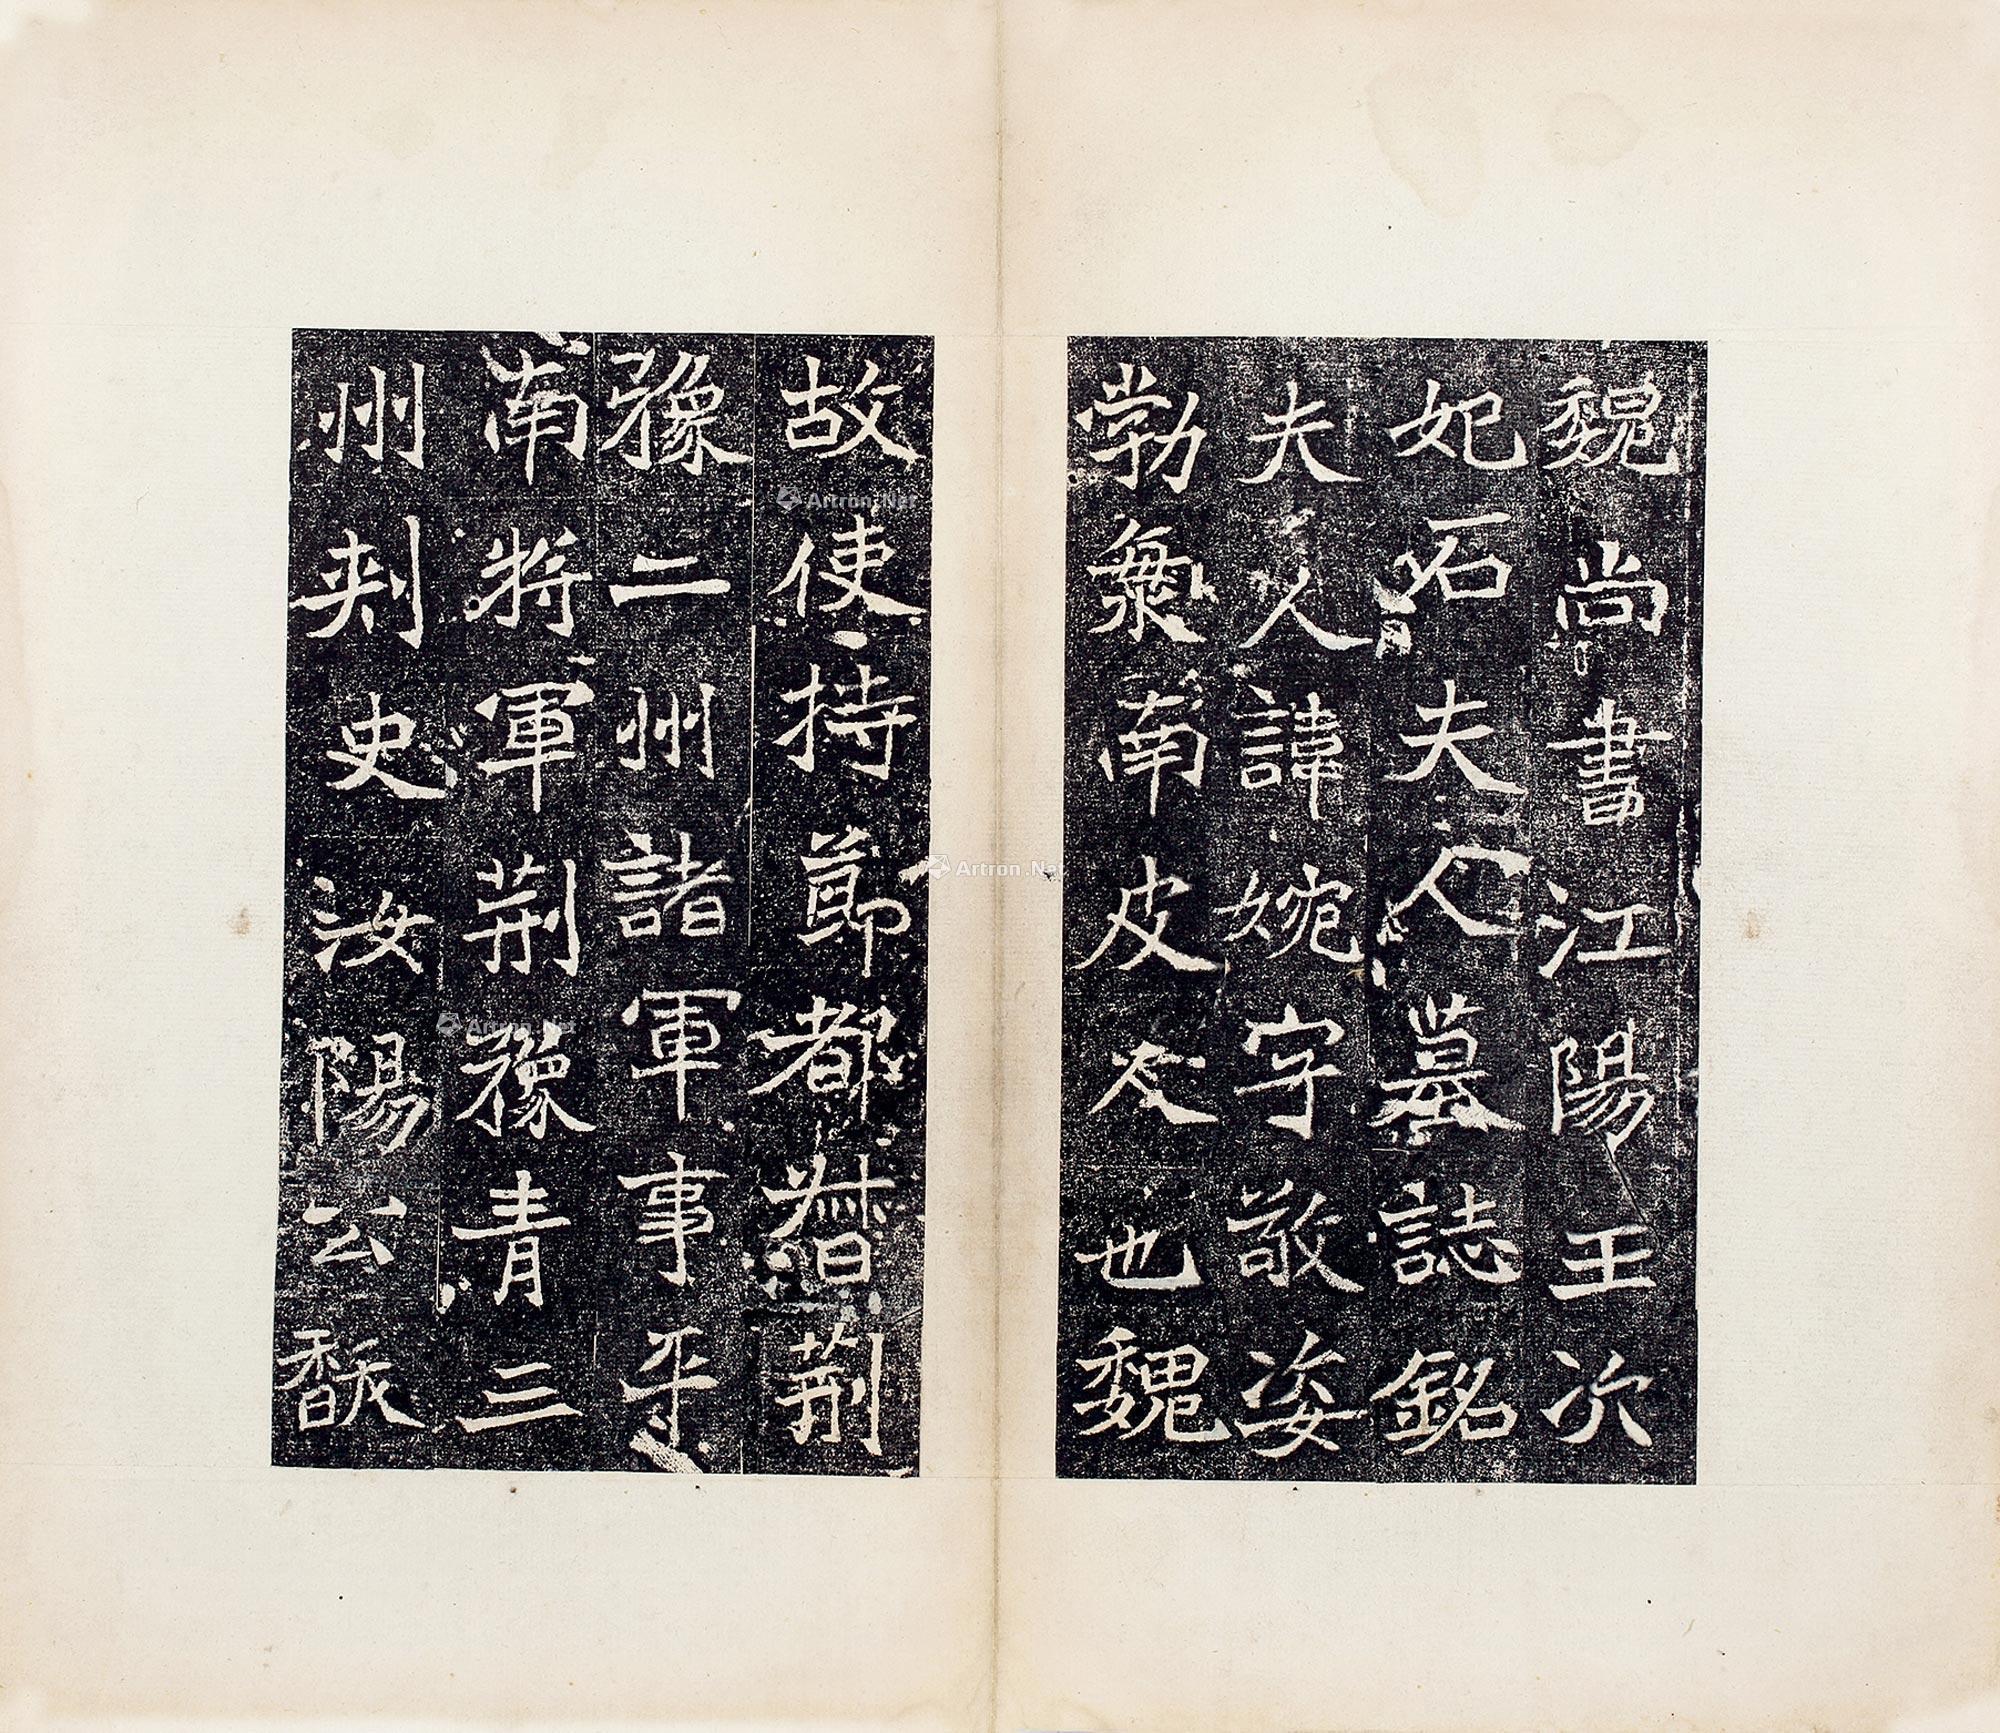 魏尚書江陽王次
妃石夫人墓誌銘
夫人諱婉字敬姿
勃海南皮人也魏
故使持節都督荊
豫二州諸軍事平
南將軍荊豫青三
州刺史汝陽公馛
Artron.Net
Artron.Net
Artron.Net